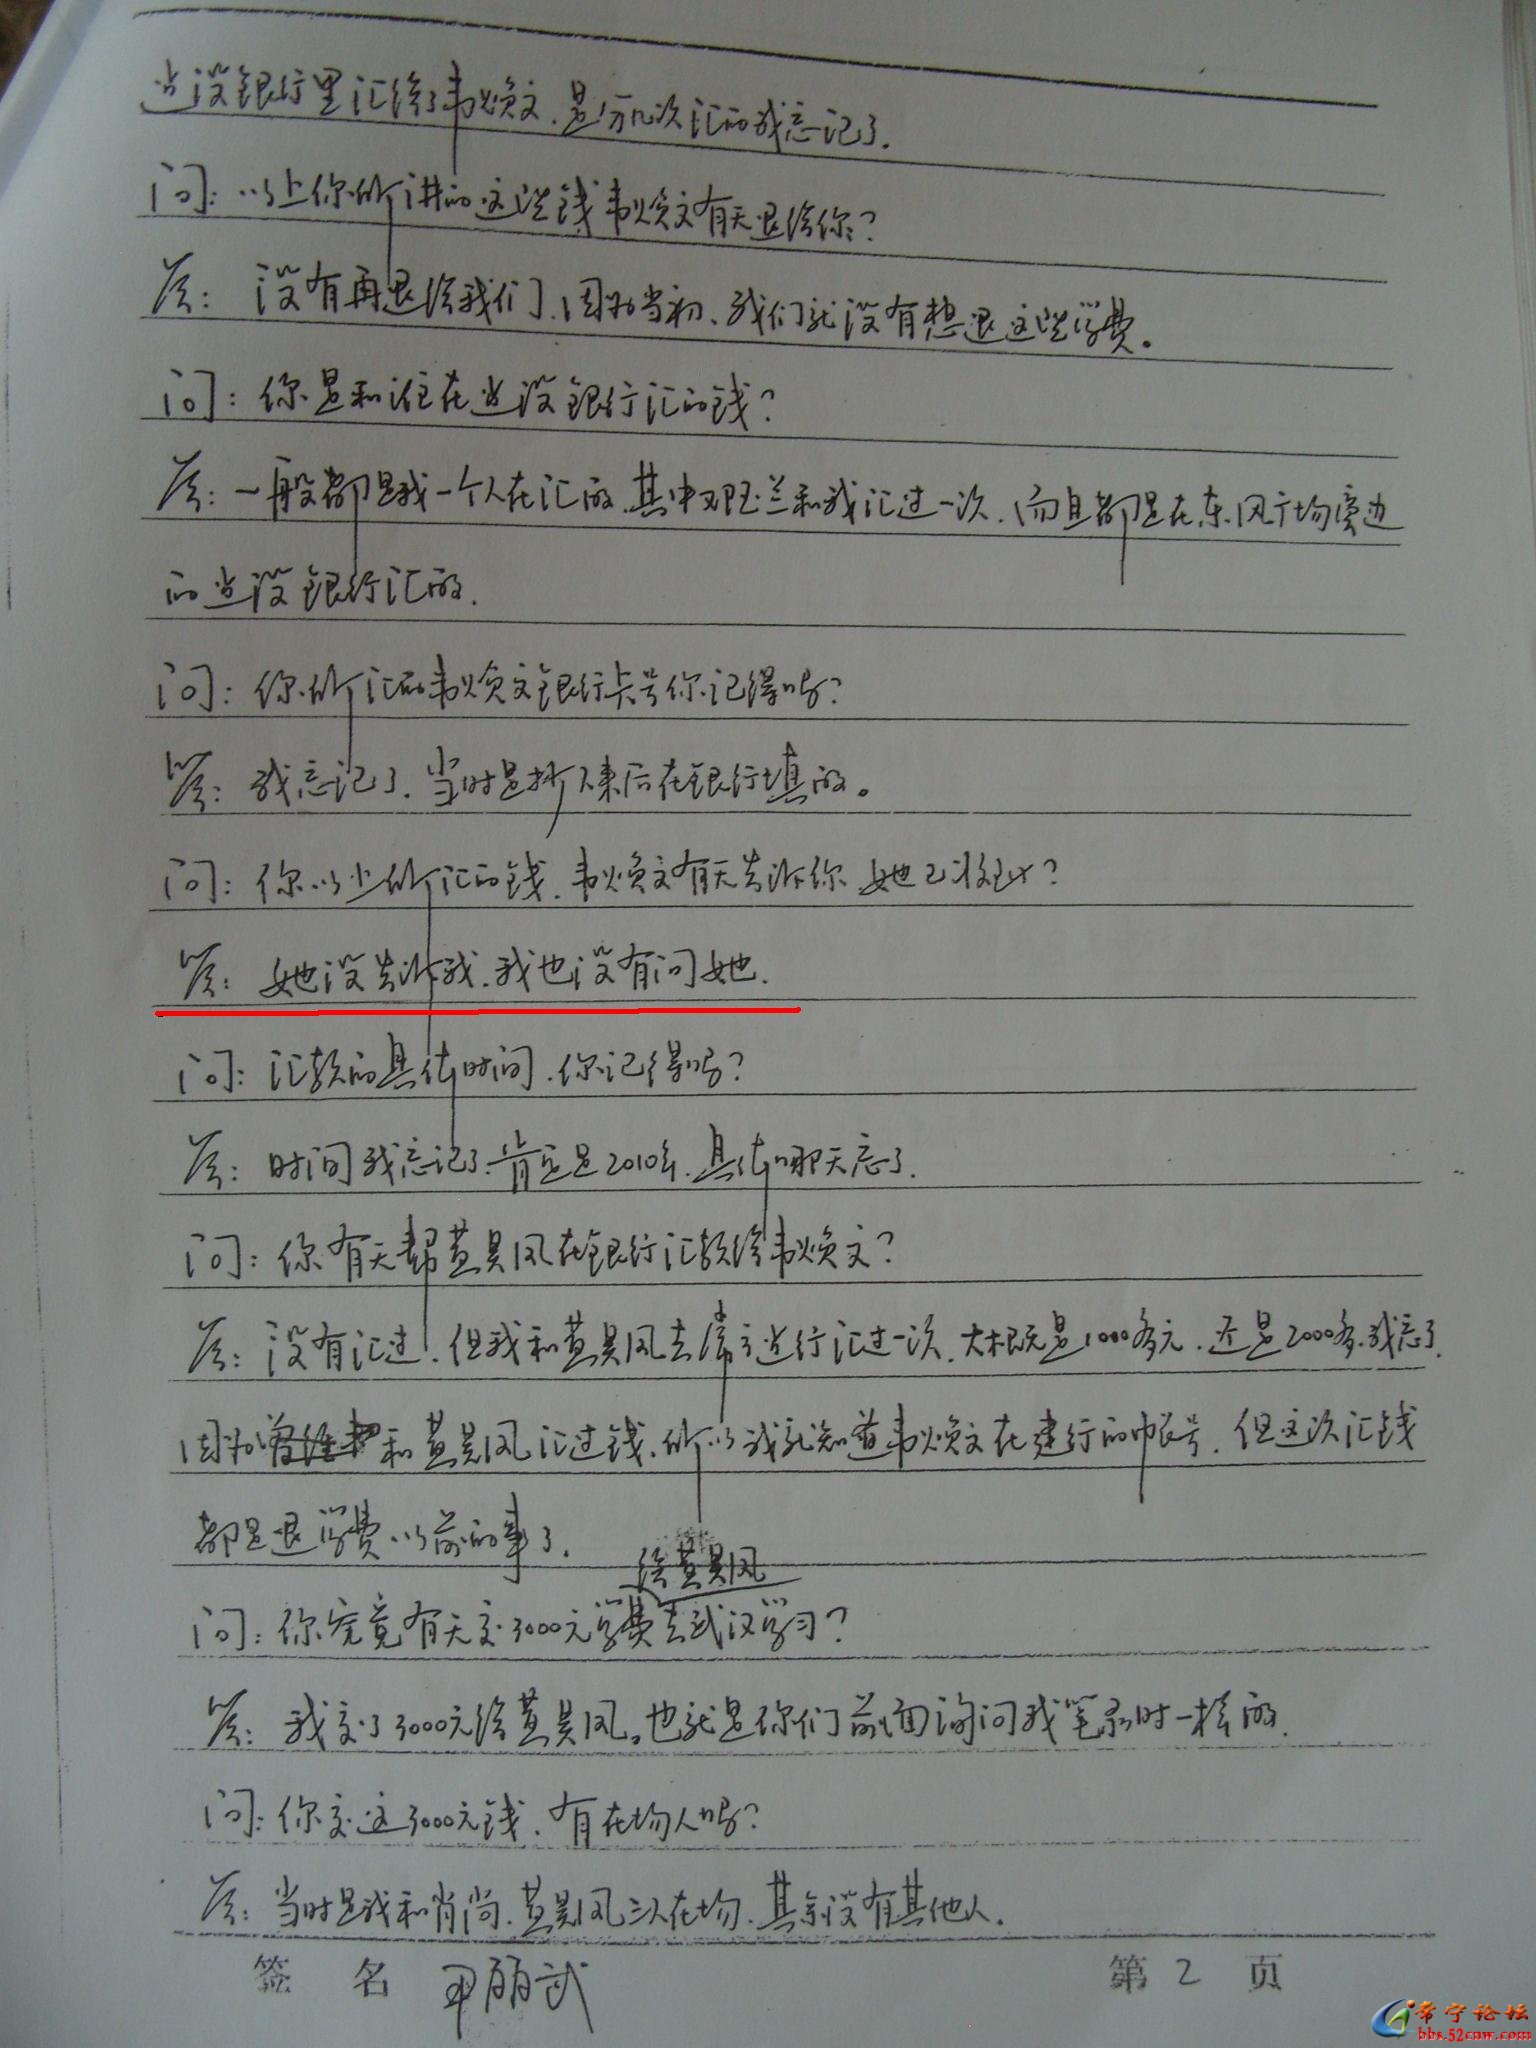 建设银行里汇给了韦焕文，是分几次汇的我忘记了.
问：以上你所讲的这些钱韦焕文有无退给你？
答：没有再退给我们，因为当初、我们就没有想退这些学费。
问：你是和谁在建设银行汇的钱？
答：一般都是我一个人在汇的，其中邓玉兰和我汇过一次，而且都是在东风广场旁边
的建设银行汇的.
问：你所汇的韦焕文银行卡号你记得吗？
答：我忘记了，当时是抄下来后在银行填的。
问：你以上所汇的钱，韦焕文有无告诉你她已收到？
答：她没告诉我，我也没有问她.
问：汇款的具体时间，你记得吗？
答：时间我忘记了，肯定是2010年，具体哪天忘了.
问：你有无帮黄昊风在银行汇款给韦焕文？
答：没有汇过，但我和黄昊风去常宁建行汇过一次，大概是1000多元，还是2000多，我忘了.
因为和黄昊风汇过钱，所以我就知道韦焕文在建行的帐号，但这次汇钱
都是退学费以前的事了.
给黄昊风
问：你究竟有无交3000元学费去武汉学习？
答：我交了3000元给黄昊风。也就是你们前面询问我笔录时一样的.
问：你交这3000元钱，有在场人吗？
答：当时是我和肖尚，黄昊风三人在场，其余没有其他人.
签 名 丽武
第 2 页
常宁论坛
bbs.52cnw.com